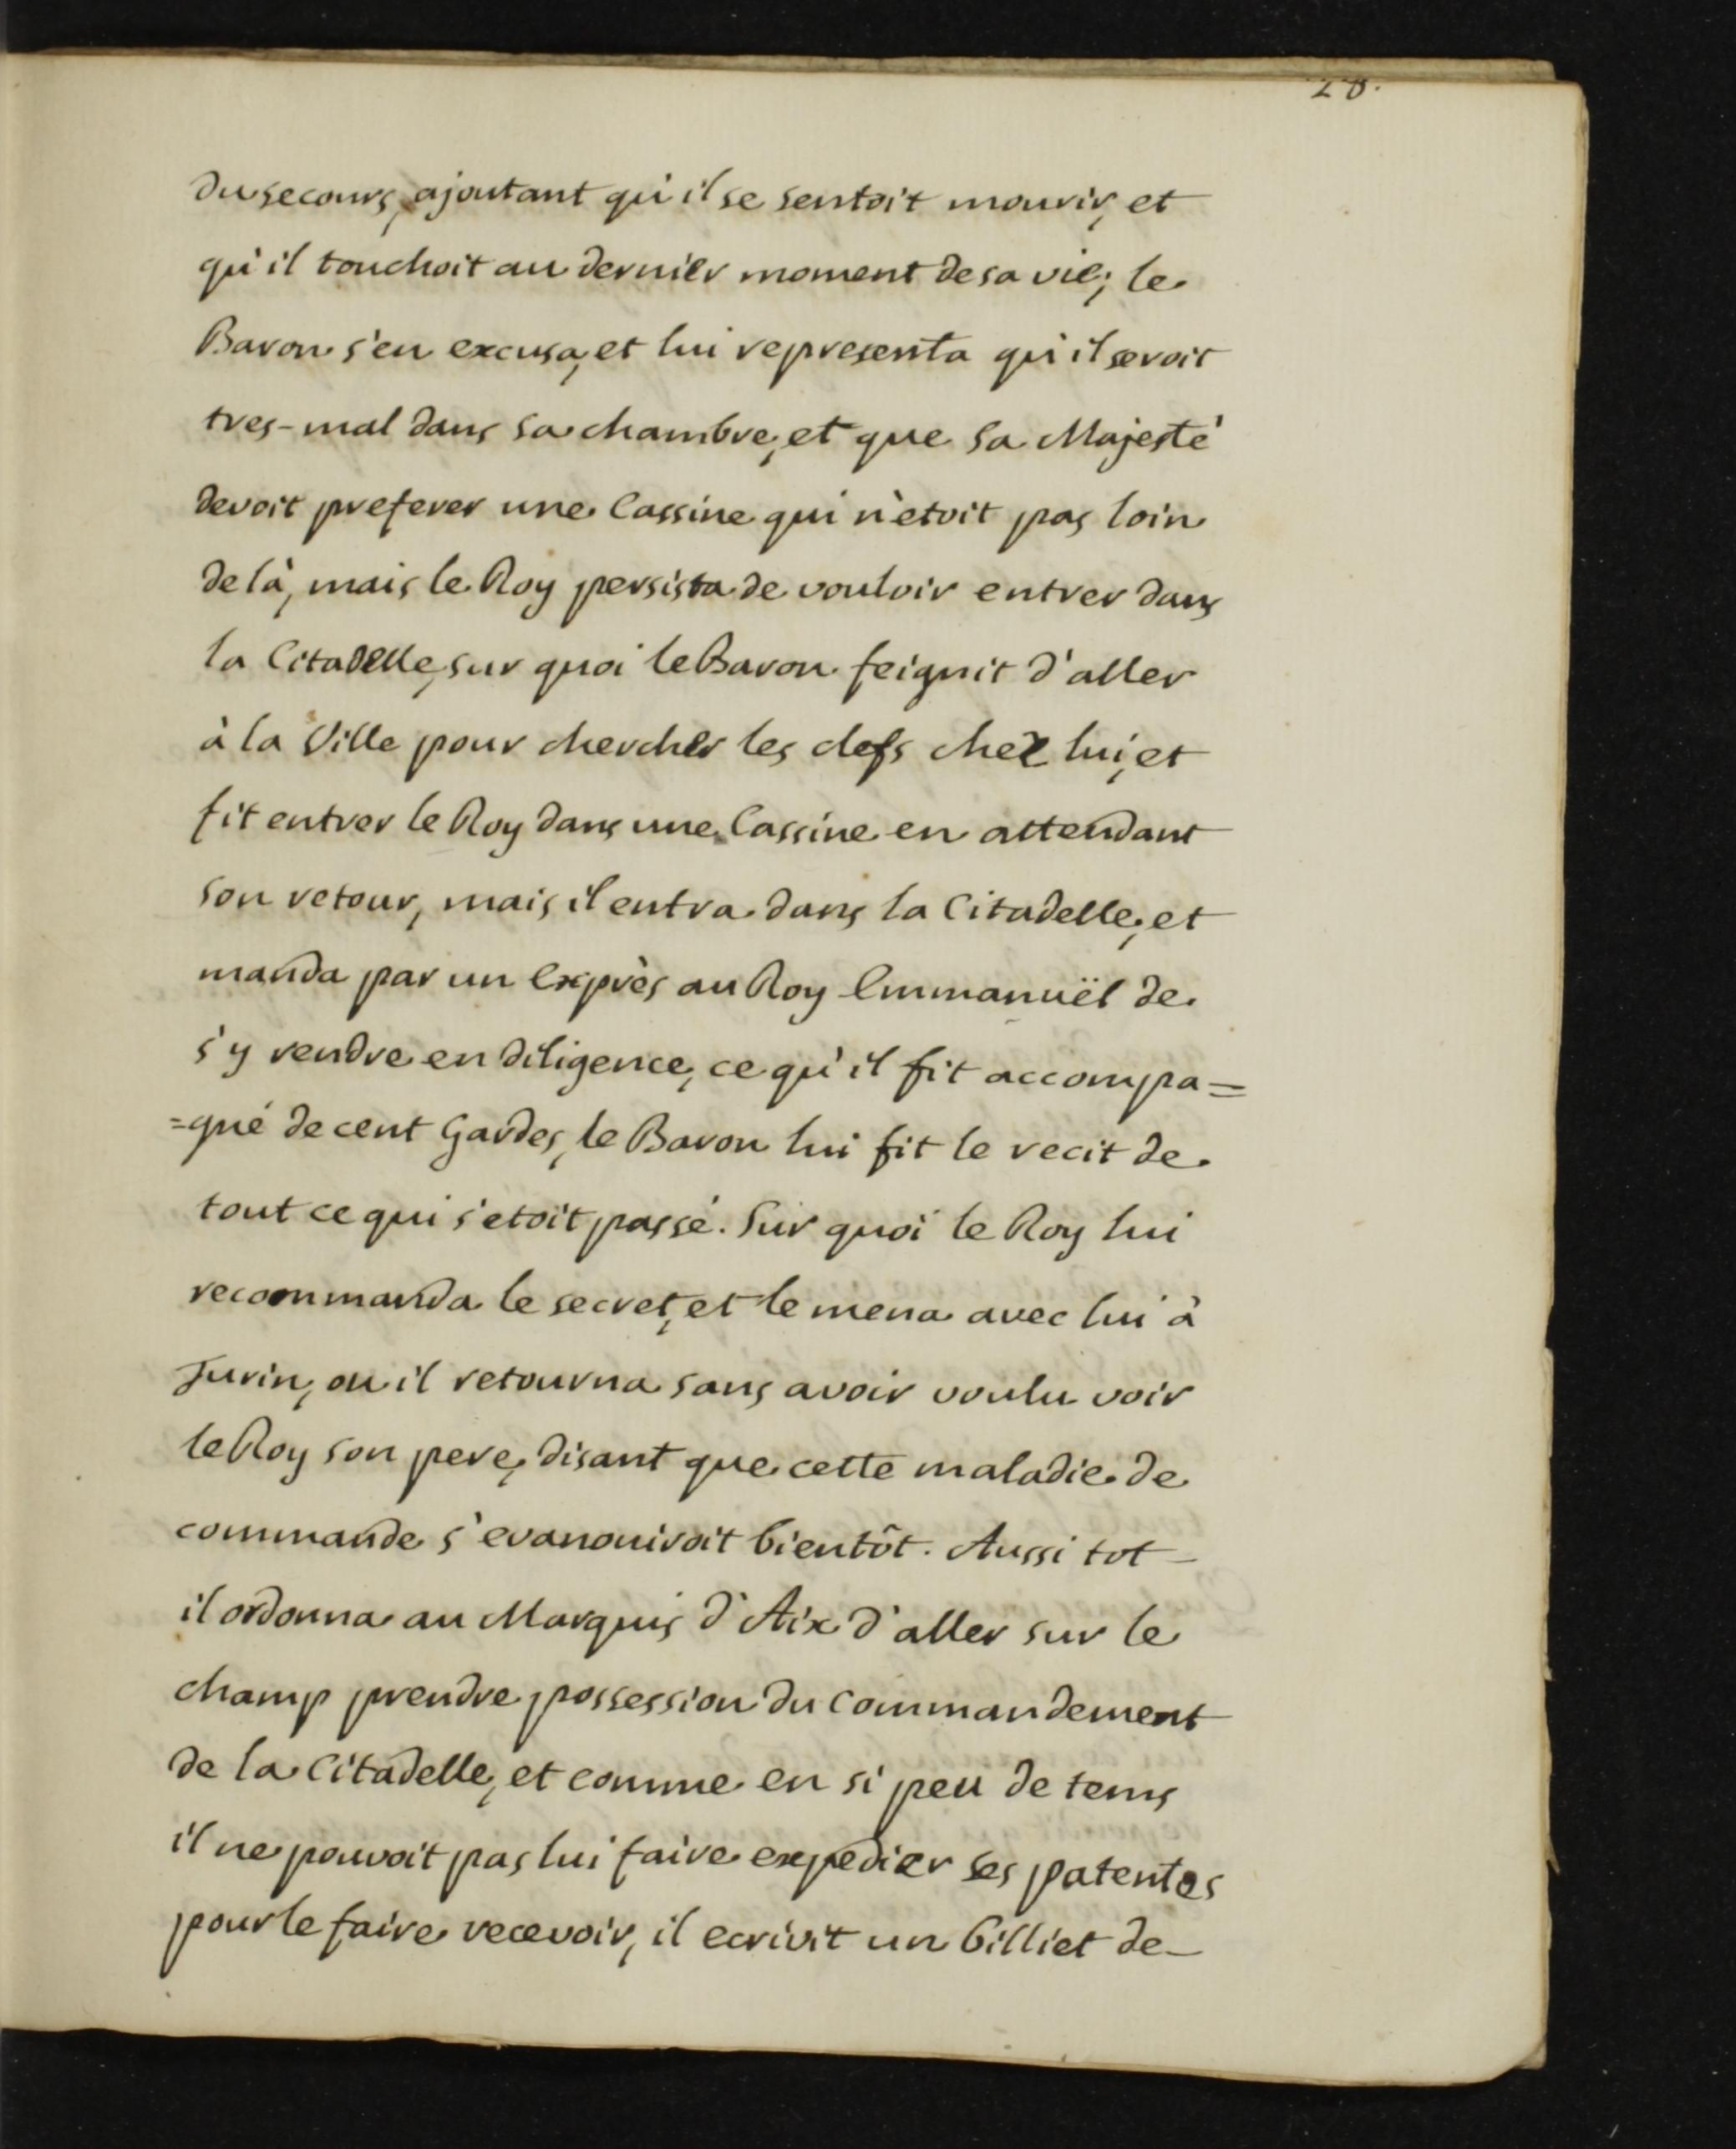 28.
du secours, ajoutant qu'il se sentoit mourir, et
qu'il touchoit au dernier moment de sa vie; le
Baron s'en excusa, et lui representa qu'il seroit
tres-mal dans sa chambre, et que sa Majesté
devoit preferer une Cassine qui n'etoit pas loin
de là, mais le Roy persista de vouloir entrer dans
la Citadelle, sur quoi le Baron feignit d'aller
à la Ville pour chercher les clefs chez lui, et
fit entrer le Roy dans une Cassine en attendant
son retour, mais il entra dans la Citadelle, et
manda par un Exprès au Roy Emmanuël de
s'y rendre en diligence, ce qu'il fit accompa=
=gné de cent Gardes, le Baron lui fit le recit de
tout ce qui s'etoit passé. Sur quoi le Roy lui
recommanda le secret, et le mena avec lui à
Turin, ou il retourna sans avoir voulu voir
le Roy son pere, disant que cette maladie de
commande s'evanouiroit bientôt. Aussi tot
il ordonna au Marquis d'Aix d'aller sur le
champ prendre possession du Commandement
de la Citadelle, et comme en si peu de tems
il ne pouvoit pas lui faire expedier ses patentes
pour le faire recevoir, il ecrivit un billiet de